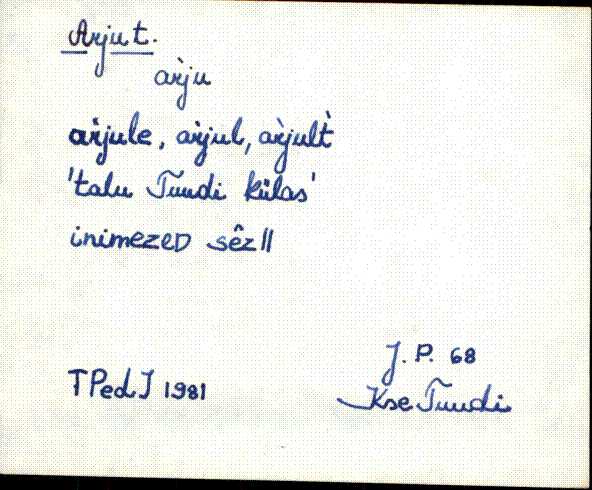 Arjut.
aŕju
aŕjule, aŕjul, aŕjult̀
'talu Tuudi külas'
inimezeD sêz||
J. P. 68
TPedJ 1981
Kse Tuudi